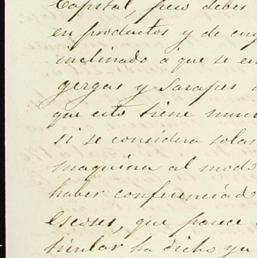 Capital, pero debes
en productos y de
inclinado a que se
gergas y Sarapes
que esto tiene
si se considera solam
maquina al modo
haber conferenciad
escoses, que parece
ha dicho ya